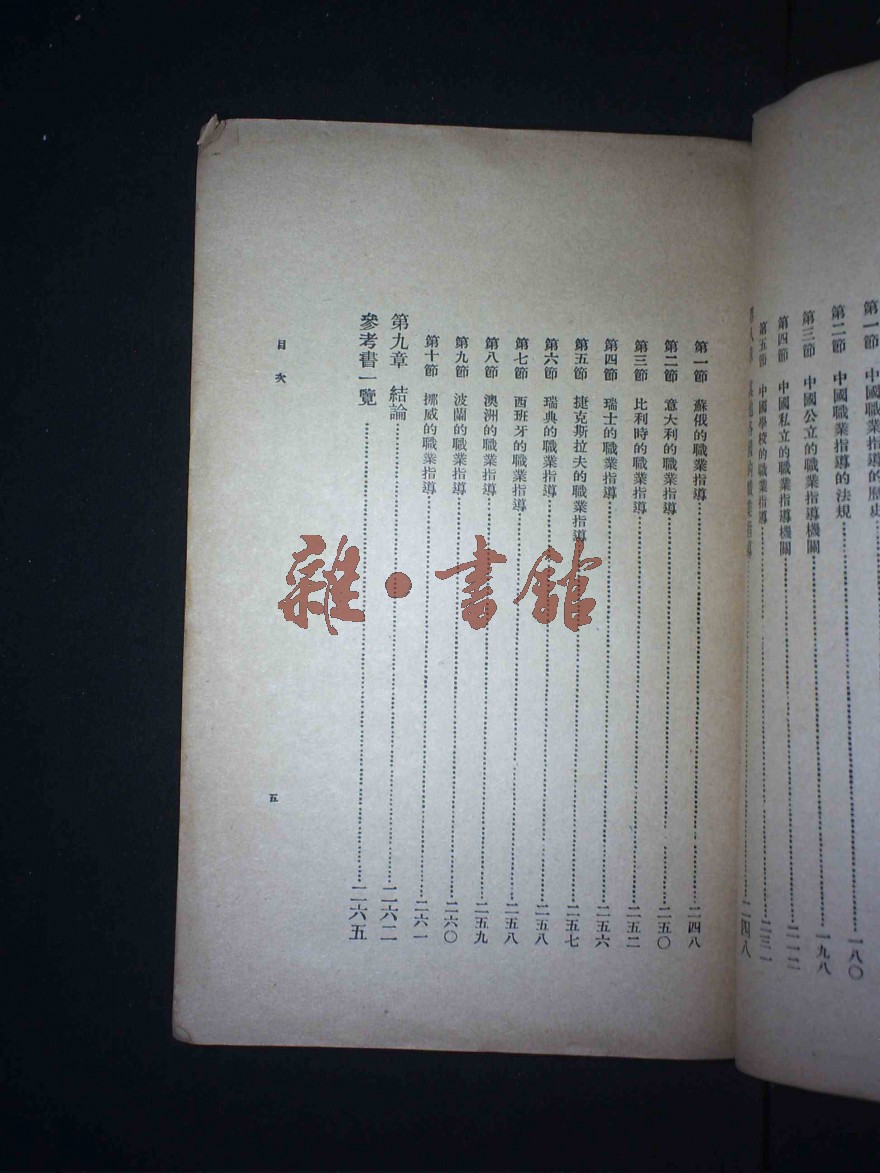 第一節 中國職業指導的歷史
第二節 中國職業指導的法規……一八〇
第三節 中國公立的職業指導機關……一九八
第四節 中國私立的職業指導機關……二一二
第五節 中國學校的職業指導……二三一
職業指導……二四八
第一節 蘇俄的職業指導……二四八
第二節 意大利的職業指導……二五〇
第三節 比利時的職業指導……二五二
第四節 瑞士的職業指導……二五六
第五節 捷克斯拉夫的職業指導……二五七
第六節 瑞典的職業指導……二五八
第七節 西班牙的職業指導……二五八
第八節 澳洲的職業指導……二五九
第九節 波蘭的職業指導……二六〇
第十節 挪威的職業指導……二六一
第九章 結論……二六二
參考書一覽……二六五
目次
五
雜·書館